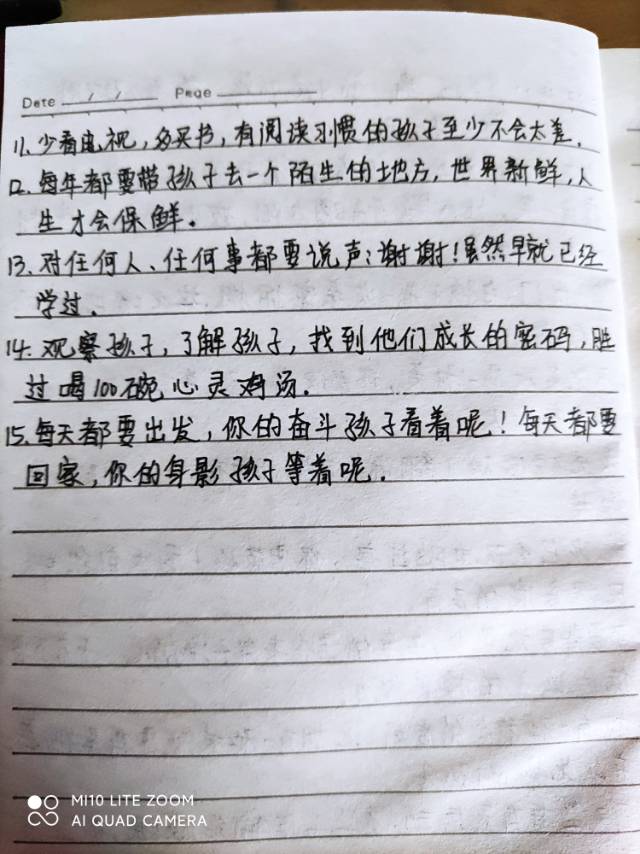 Date / / Page
11. 少看电视,多买书,有阅读习惯的孩子至少不会太差.
12. 每年都要带孩子去一个陌生的地方,世界新鲜,人
生才会保鲜。
13. 对任何人、任何事都要说声:谢谢!虽然早就已经
学过.
14. 观察孩子,了解孩子,找到他们成长的密码,胜
过喝100碗心灵鸡汤.
15. 每天都要出发,你的奋斗孩子看着呢!每天都要
回家,你的身影孩子等着呢.
MI10 LITE ZOOM
AI QUAD CAMERA